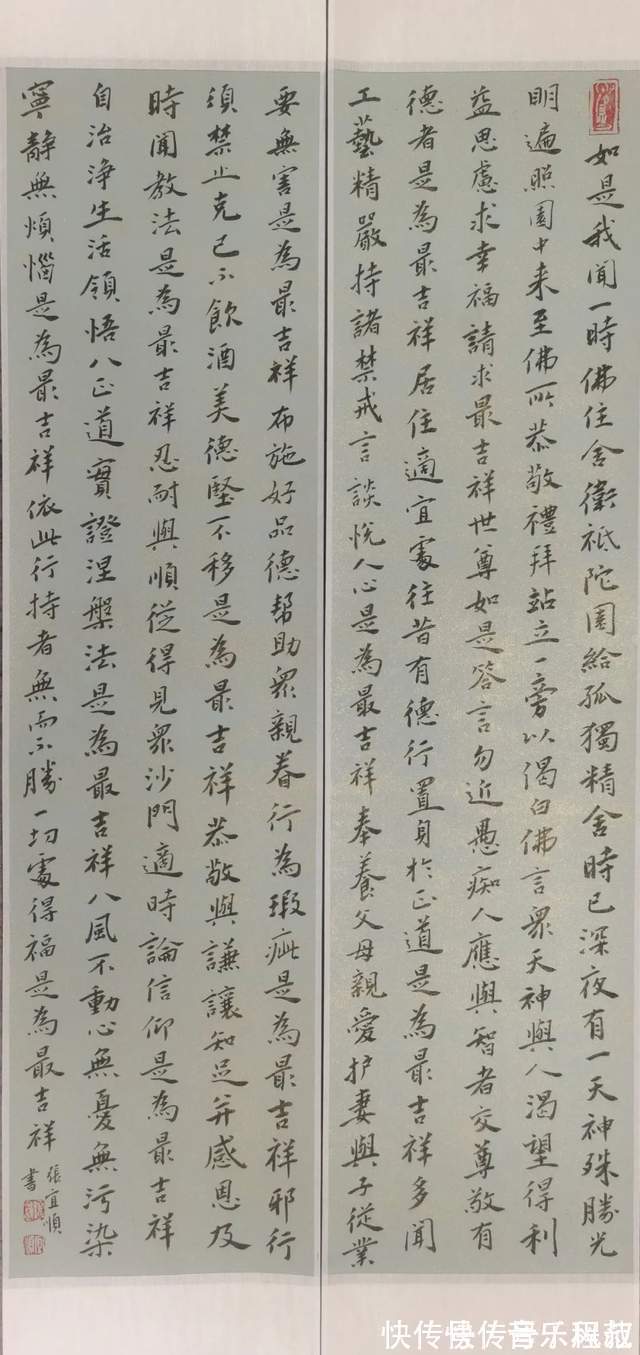 如是我闻一時佛住舍衛祗陀園給孤獨精舍時已深夜有一天神殊勝光
明遍照園中来至佛所恭敬禮拜站立一旁以偈白佛言衆天神與人渴望得利
益思慮求幸福請求最吉祥世尊如是答言勿近愚痴人應與智者交尊敬有
德者是為最吉祥居住適宜處往昔有德行置身於正道是為最吉祥多聞
工藝精嚴持諸禁戒言談悅人心是為最吉祥奉養父母親愛护妻與子從業
要無害是為最吉祥布施好品德幇助衆親眷行為瑕疵是為最吉祥邪行
須禁止克己不飲酒美德堅不移是為最吉祥恭敬與謙讓知足并感恩及
時闻教法是為最吉祥忍耐與順從得見衆沙門適時論信仰是為最吉祥
自治淨生活領悟八正道實證涅槃法是為最吉祥八風不動心無憂無污染
寧靜無煩惱是為最吉祥依此行持者無而不勝一切處得福是為最吉祥
張宜順
書
快传号